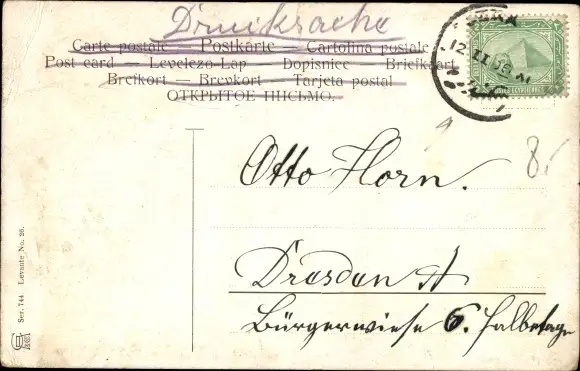 Drucksache
Carte postale — Postkarte — Cartolina postale
Post card — Levelezo-Lap — Dopisnice — Briefkaart
Brefkort — Brevkort — Tarjeta postal
ОТКРЫТОЕ ПИСЬМО.
12 II
8.
Otto Horn.
Dresden A
Bürgerwiese 6. Halbetage
Ser. 744 Levante No. 26.